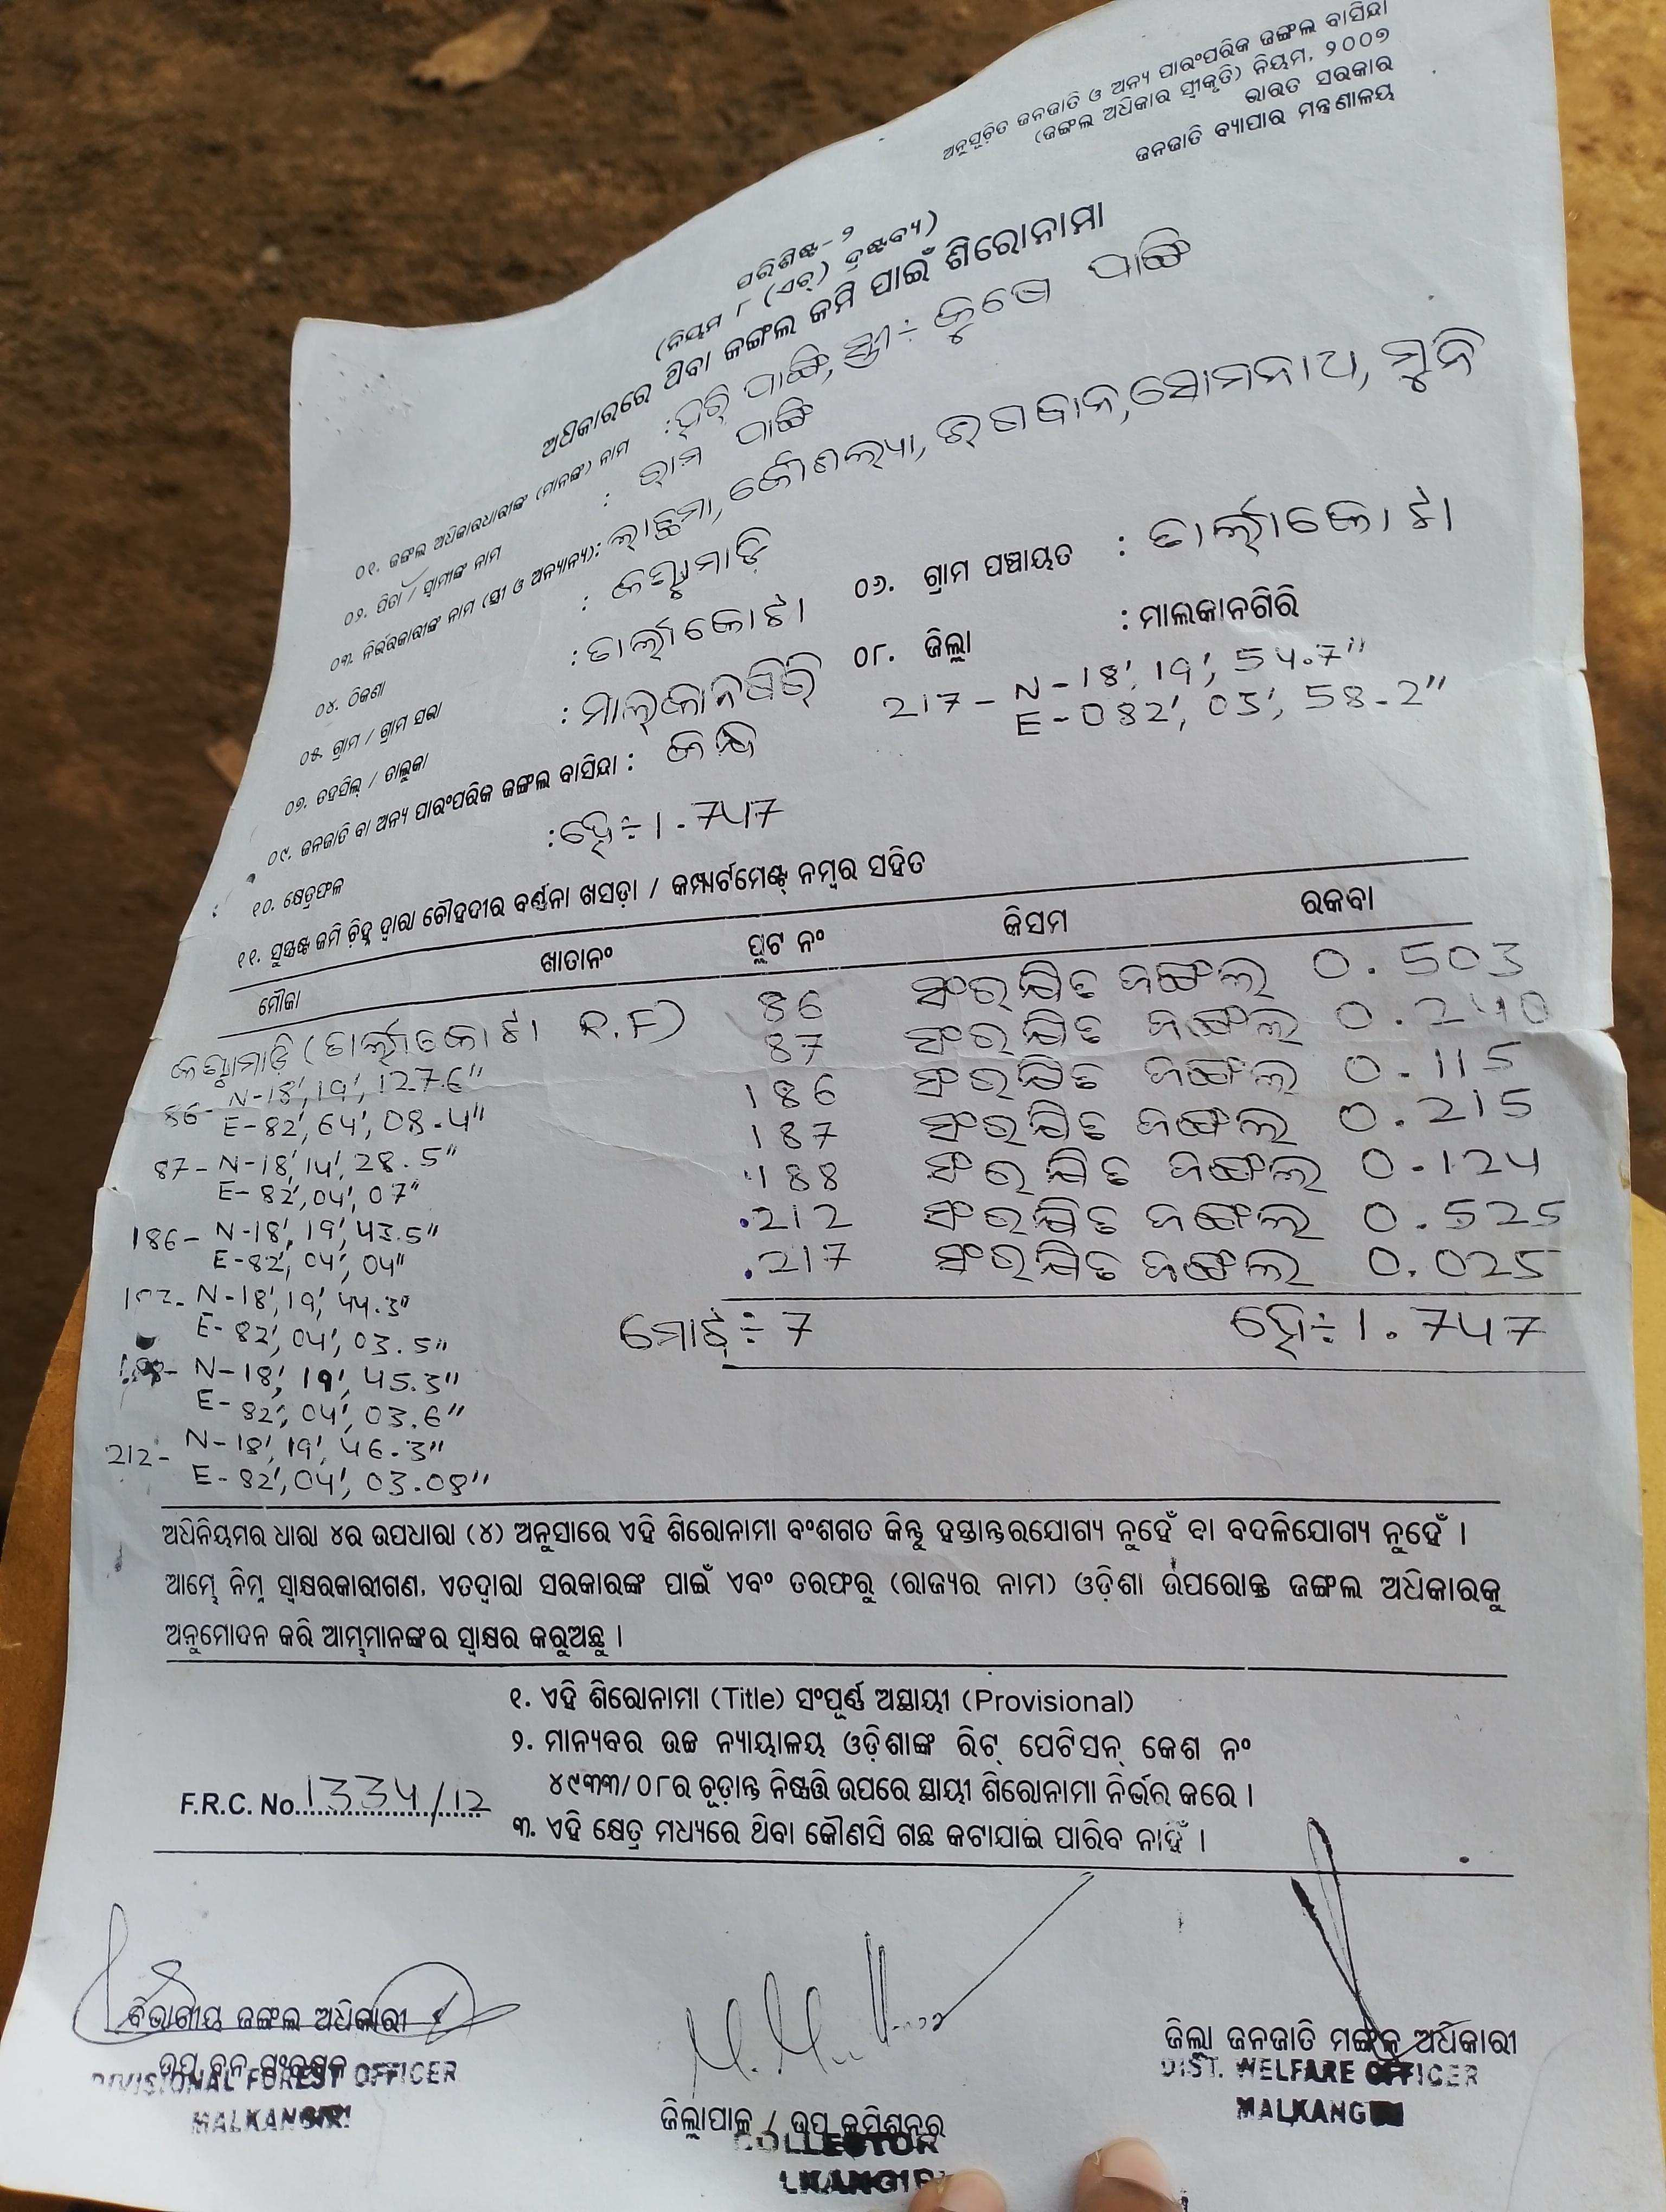 ଅନୁସୂଚିତ ଜନଜାତି ଓ ଅନ୍ୟ ପାରଂପରିକ ଜଙ୍ଗଲ ବାସିନ୍ଦା
(ଜଙ୍ଗଲ ଅଧିକାର ସ୍ୱୀକୃତି) ନିୟମ, ୨୦୦୭
ଭାରତ ସରକାର
ଜନଜାତି ବ୍ୟାପାର ମନ୍ତ୍ରଣାଳୟ
ପରିଶିଷ୍ଟ-୨
(ନିୟମ ୮ (ଏଚ୍) ଦ୍ରଷ୍ଟବ୍ୟ)
ଅଧିକାରରେ ଥିବା ଜଙ୍ଗଲ ଜମି ପାଇଁ ଶିରୋନାମା
୦୧. ଜଙ୍ଗଲ ଅଧିକାରଧାରୀଙ୍କ (ମାନଙ୍କ) ନାମ : ହରି ପାଙ୍ଗି, ସ୍ତ୍ରୀ÷ ପାଙ୍ଗି
୦୨. ପିତା / ସ୍ୱାମୀଙ୍କ ନାମ : ରାମ ପାଙ୍ଗି
୦୩. ନିର୍ଭରକାରୀଙ୍କ ନାମ (ସ୍ତ୍ରୀ ଓ ଅନ୍ୟାନ୍ୟ): ଲାଛମା, କୌଶଲ୍ୟା, ଭଗବାନ, ସୋମନାଥ, ମୁନି
୦୪. ଠିକଣା :
୦୫. ଗ୍ରାମ / ଗ୍ରାମ ସଭା : ତାର୍ଲାକୋଟା ୦୬. ଗ୍ରାମ ପଞ୍ଚାୟତ : ତାର୍ଲାକୋଟା
୦୭. ତହସିଲ୍ / ତାଲୁକା : ମାଲ୍କାନଗିରି ୦୮. ଜିଲ୍ଲା : ମାଲକାନଗିରି
୦୯. ଜନଜାତି ବା ଅନ୍ୟ ପାରଂପରିକ ଜଙ୍ଗଲ ବାସିନ୍ଦା : କନ୍ଧ
217- N-18', 19', 54.7"
E-082', 03', 58-2"
୧୦. କ୍ଷେତ୍ରଫଳ :ହେ÷1.747
୧୧. ସୁସ୍ପଷ୍ଟ ଜମି ଚିହ୍ନ ଦ୍ୱାରା ଚୌହଦୀର ବର୍ଣ୍ଣନା ଖସଡ଼ା / କମ୍ପାର୍ଟମେଣ୍ଟ୍ ନମ୍ବର ସହିତ
ମୌଜା ଖାତାନଂ ପ୍ଲଟ ନଂ କିସମ ରକବା
(ତାର୍ଲାକୋଟା R.F) 86 ସଂରକ୍ଷିତ ଜଙ୍ଗଲ 0.503
87 ସଂରକ୍ଷିତ ଜଙ୍ଗଲ 0.240
186 ସଂରକ୍ଷିତ ଜଙ୍ଗଲ 0.115
187 ସଂରକ୍ଷିତ ଜଙ୍ଗଲ 0.215
188 ସଂରକ୍ଷିତ ଜଙ୍ଗଲ 0.124
212 ସଂରକ୍ଷିତ ଜଙ୍ଗଲ 0.525
217 ସଂରକ୍ଷିତ ଜଙ୍ଗଲ 0.025
ମୋଟ୍÷7 ହେ÷1.747
86- N-18', 19',
E-82', 64', 08.4"
87- N-18', 14', 28.5"
E-82', 04', 07"
186- N-18', 19', 43.5"
E-82', 04', 04"
N-18', 19', 44.3"
E-82', 04', 03.5"
N-18', 19', 45.3"
E-82', 04', 03.6"
212- N-18', 19', 46.3"
E-82', 04', 03.08"
ଅଧିନିୟମର ଧାରା ୪ର ଉପଧାରା (୪) ଅନୁସାରେ ଏହି ଶିରୋନାମା ବଂଶଗତ କିନ୍ତୁ ହସ୍ତାନ୍ତରଯୋଗ୍ୟ ନୁହେଁ ବା ବଦଳିଯୋଗ୍ୟ ନୁହେଁ ।
ଆମ୍ଭେ ନିମ୍ନ ସ୍ୱାକ୍ଷରକାରୀଗଣ, ଏତଦ୍ୱାରା ସରକାରଙ୍କ ପାଇଁ ଏବଂ ତରଫରୁ (ରାଜ୍ୟର ନାମ) ଓଡ଼ିଶା ଉପରୋକ୍ତ ଜଙ୍ଗଲ ଅଧିକାରକୁ
ଅନୁମୋଦନ କରି ଆମ୍ଭମାନଙ୍କର ସ୍ୱାକ୍ଷର କରୁଅଛୁ ।
୧. ଏହି ଶିରୋନାମା (Title) ସଂପୂର୍ଣ୍ଣ ଅସ୍ଥାୟୀ (Provisional)
୨. ମାନ୍ୟବର ଉଚ୍ଚ ନ୍ୟାୟାଳୟ ଓଡ଼ିଶାଙ୍କ ରିଟ୍ ପେଟିସନ୍ କେଶ ନଂ
୪୯୩୩/୦୮ର ଚୂଡ଼ାନ୍ତ ନିଷ୍ପତ୍ତି ଉପରେ ସ୍ଥାୟୀ ଶିରୋନାମା ନିର୍ଭର କରେ ।
F.R.C. No. 1334/12
୩. ଏହି କ୍ଷେତ୍ର ମଧ୍ୟରେ ଥିବା କୌଣସି ଗଛ କଟାଯାଇ ପାରିବ ନାହିଁ ।
ବିଭାଗୀୟ ଜଙ୍ଗଲ ଅଧିକାରୀ
ଉପ ବନ ସଂରକ୍ଷକ
DIVISIONAL FOREST OFFICER
MALKANGIRI
ଜିଲ୍ଲାପାଳ / ଉପ କମିଶନର
COLLECTOR
ଜିଲ୍ଲା ଜନଜାତି ମଙ୍ଗଳ ଅଧିକାରୀ
DIST. WELFARE OFFICER